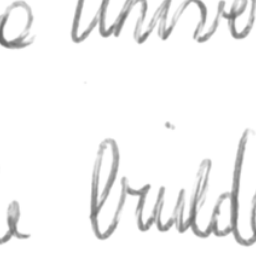 o Unive
e build